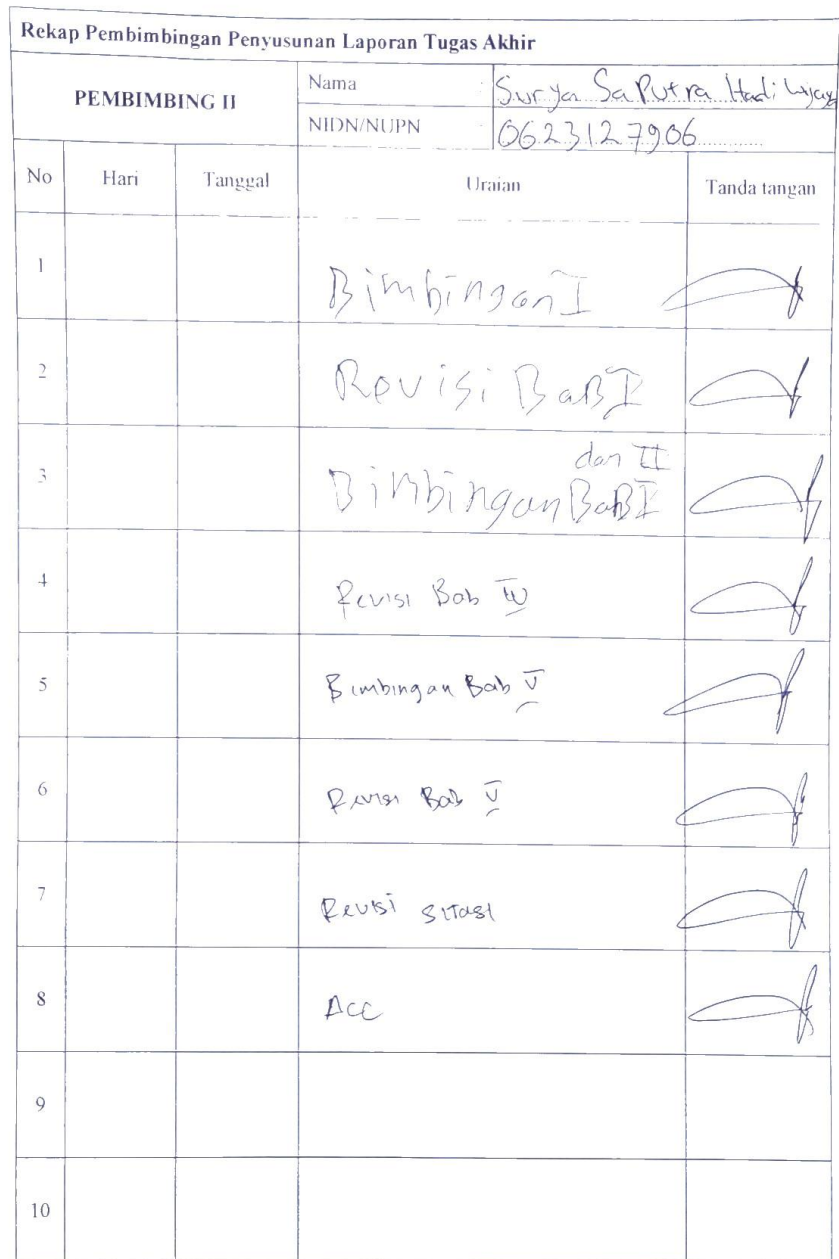 Rekap Pembimbingan Penyusunan Laporan Tugas Akhir
PEMBIMBING II
Nama : Surya SaPutra Hadi Wijaya
NIDN/NUPN 0623127906
No Hari Tanggal Uraian Tanda tangan
1 Bimbingan I
2 Revisi BaB I
dan II
3 Bimbingan BaB I
4 Revisi Bab IV
5 Bimbingan Bab V
6 Revisi Bab V
7 Revisi sitasi
8 Acc
9
10